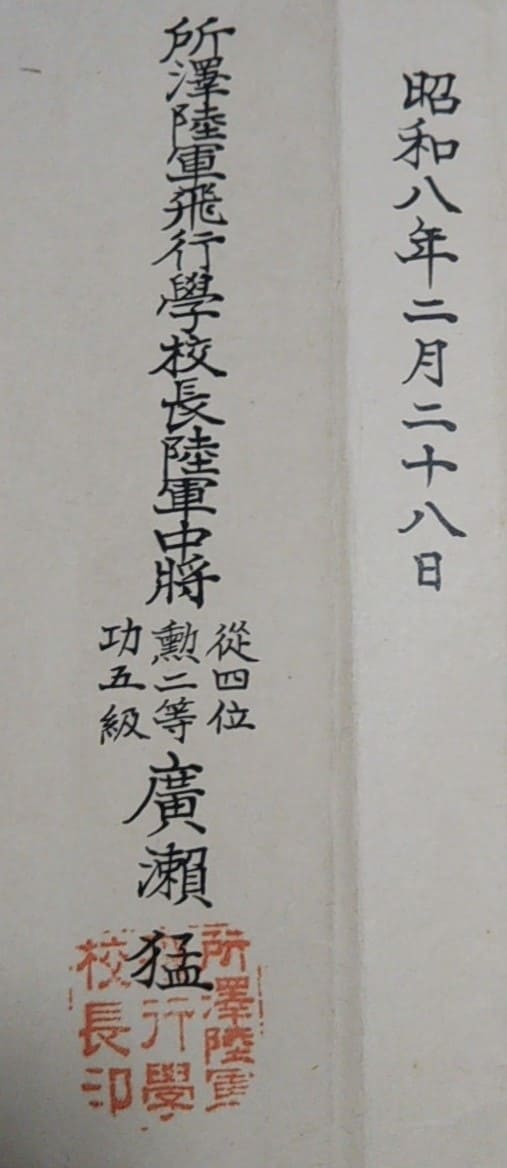 昭和八年二月二十八日
所澤陸軍飛行學校長陸軍中將
從四位
勲二等
功五級
廣瀬猛
所澤陸軍
飛行學
校長印